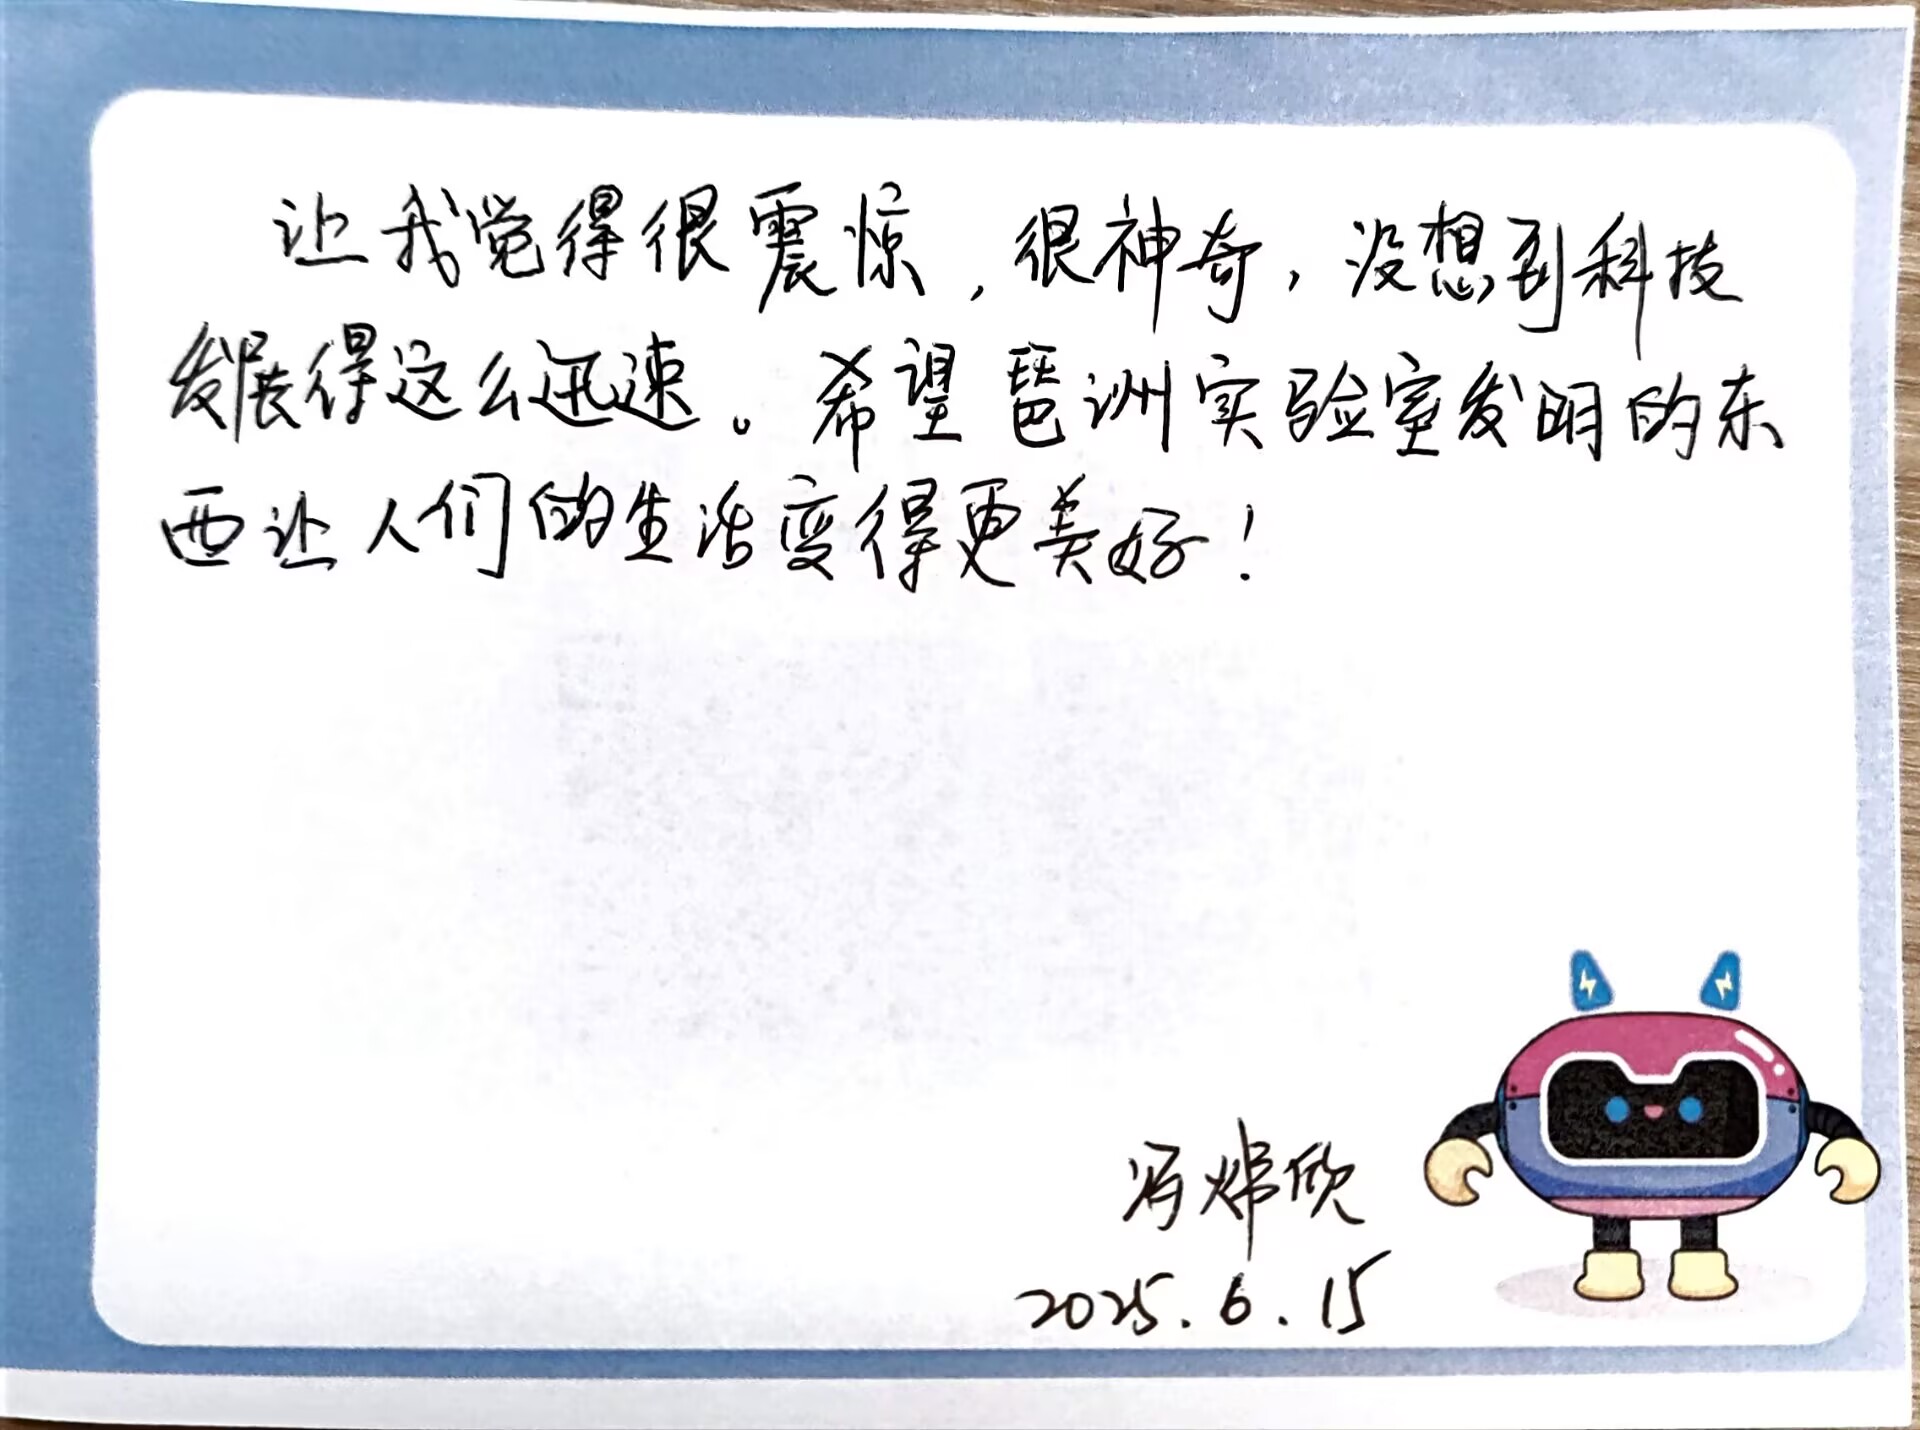 让我觉得很震惊，很神奇，没想到科技
发展得这么迅速。希望琶洲实验室发明的东
西让人们的生活变得更美好！
冯炜欣
2025.6.15